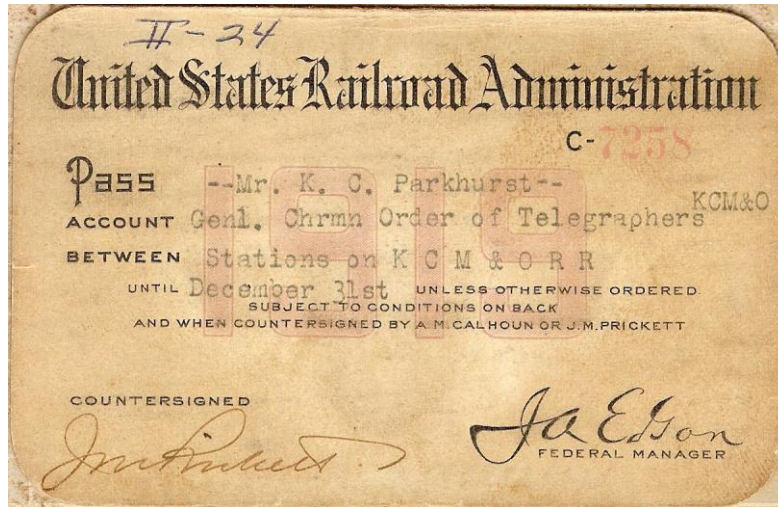 II-24
United States Railroad Administration
C-7258
Pass --Mr. K. C. Parkhurst--
KCM&O
ACCOUNT Genl. Chrmn Order of Telegraphers
BETWEEN Stations on K C M & O R R
1919
UNTIL December 31st UNLESS OTHERWISE ORDERED
SUBJECT TO CONDITIONS ON BACK
AND WHEN COUNTERSIGNED BY A.M.CALHOUN OR J.M.PRICKETT
COUNTERSIGNED
JM Prickett
JA Edson
FEDERAL MANAGER